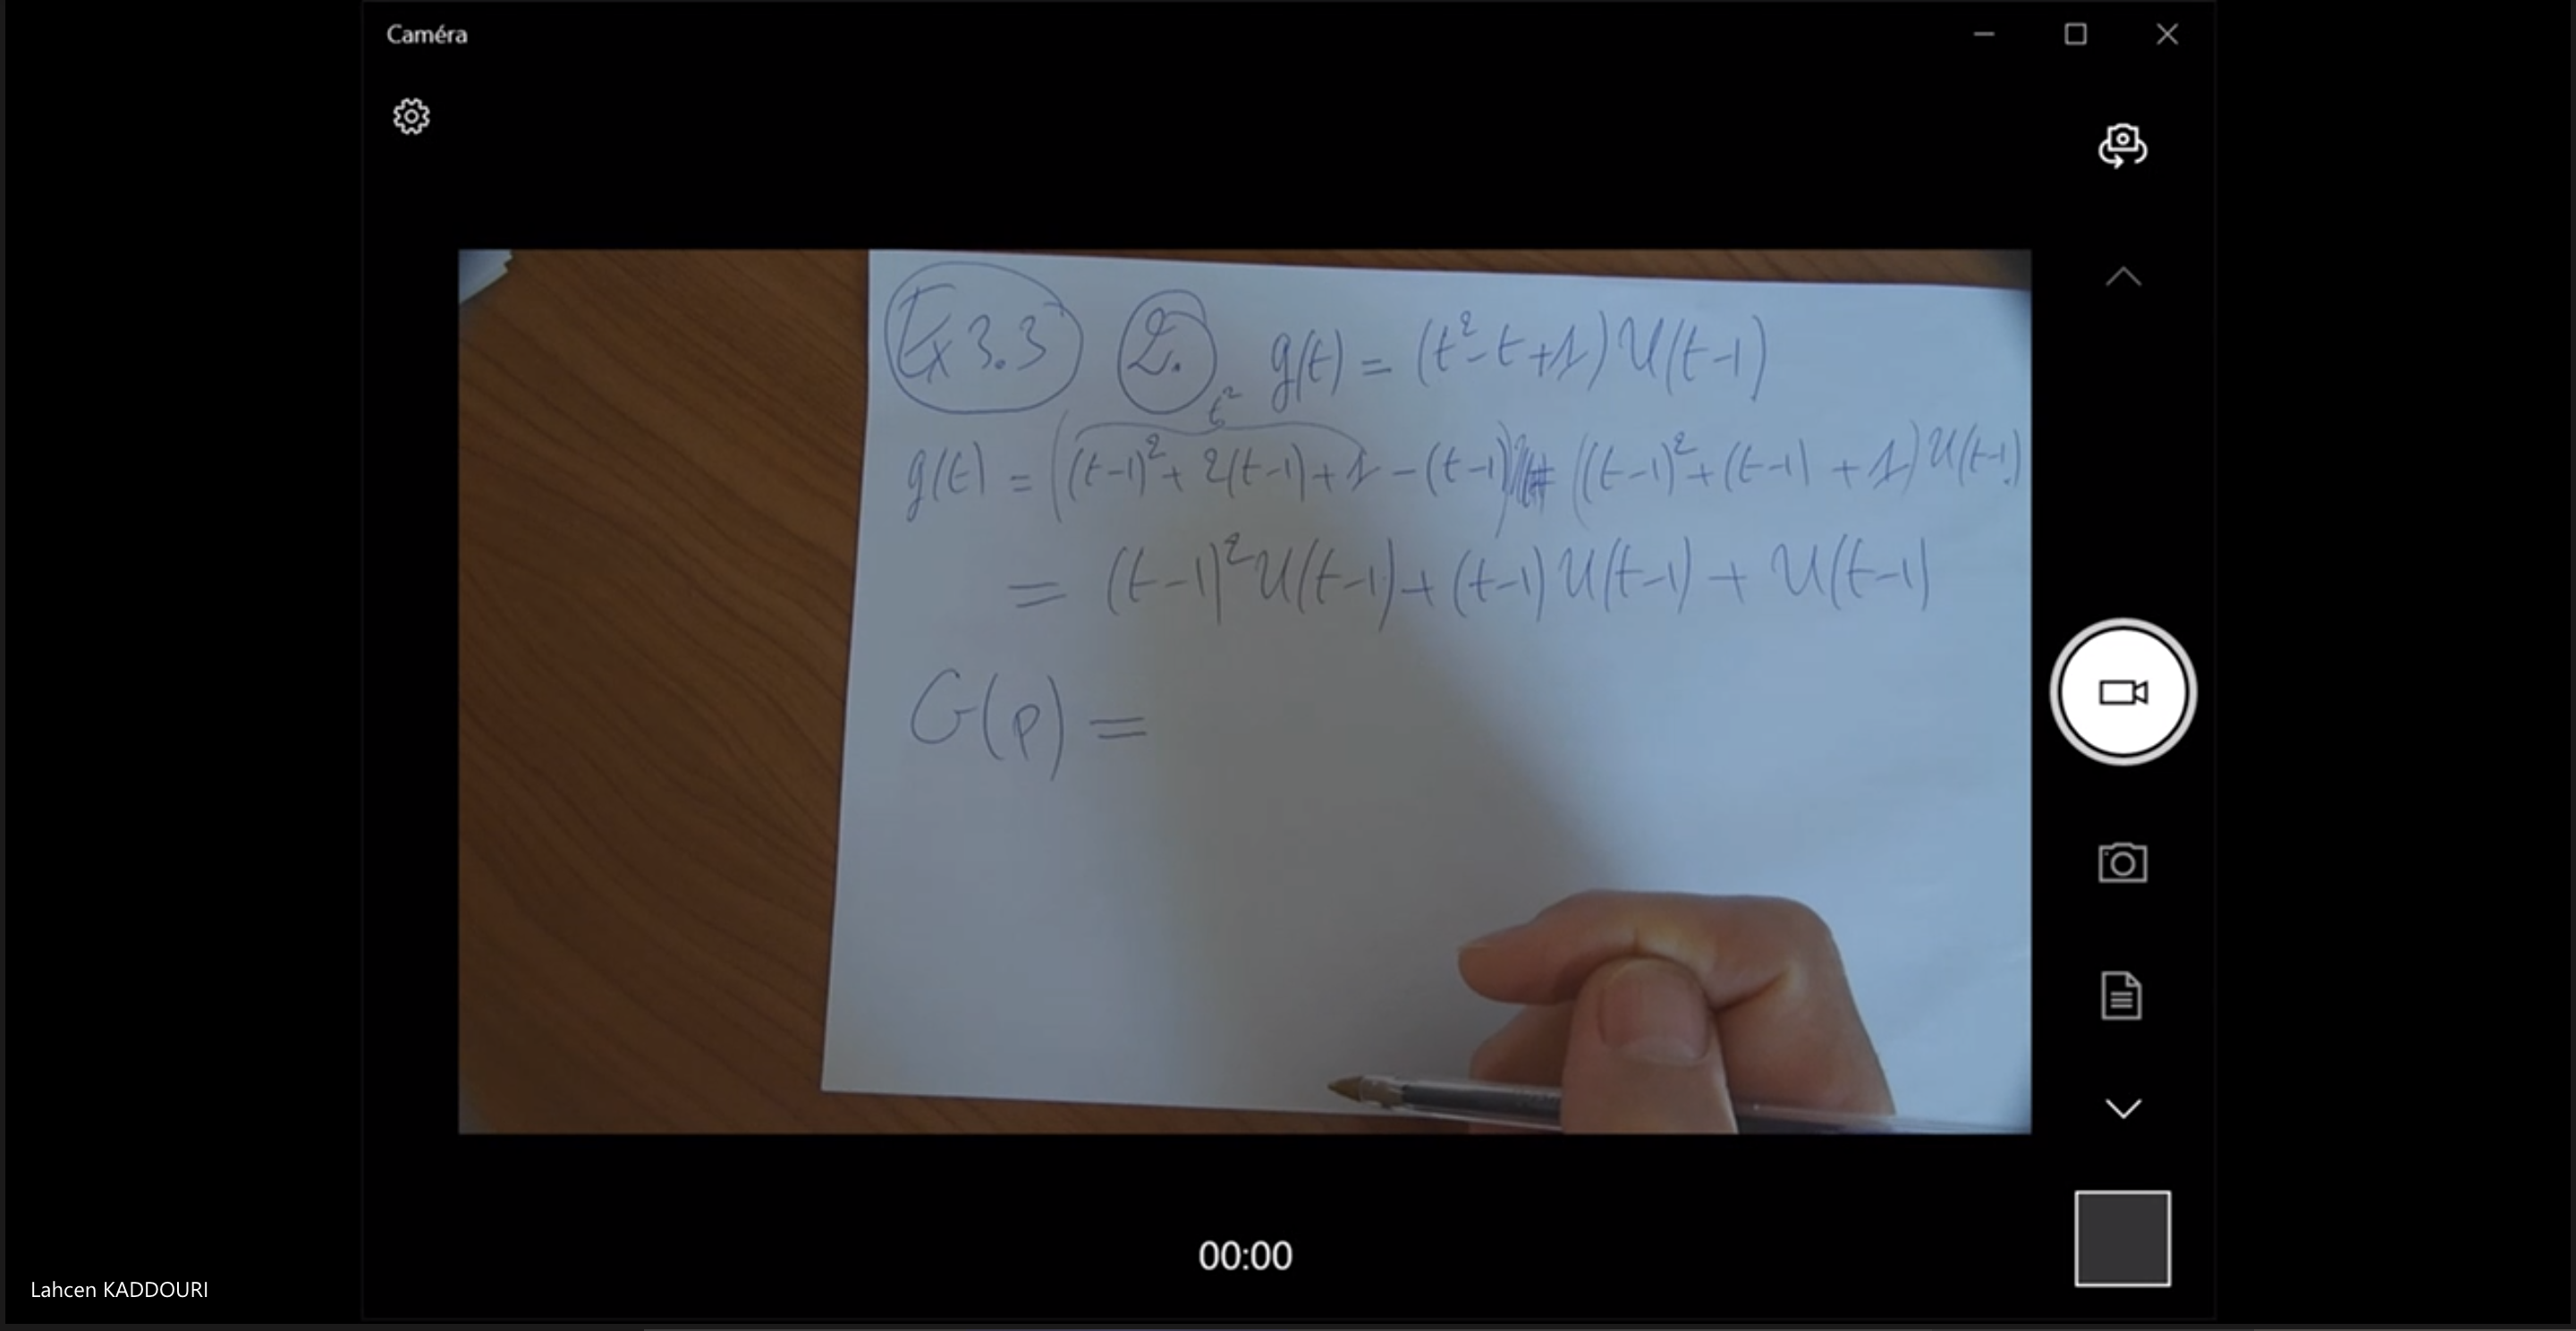 Caméra
Ex 3.3 2. g(t) = (t²-t+1) U(t-1)
t²
g(t) = ((t-1)² + 2(t-1) + 1 - (t-1)) = ((t-1)² + (t-1) + 1) U(t-1)
= (t-1)² U(t-1) + (t-1) U(t-1) + U(t-1)
G(p) =
00:00
Lahcen KADDOURI